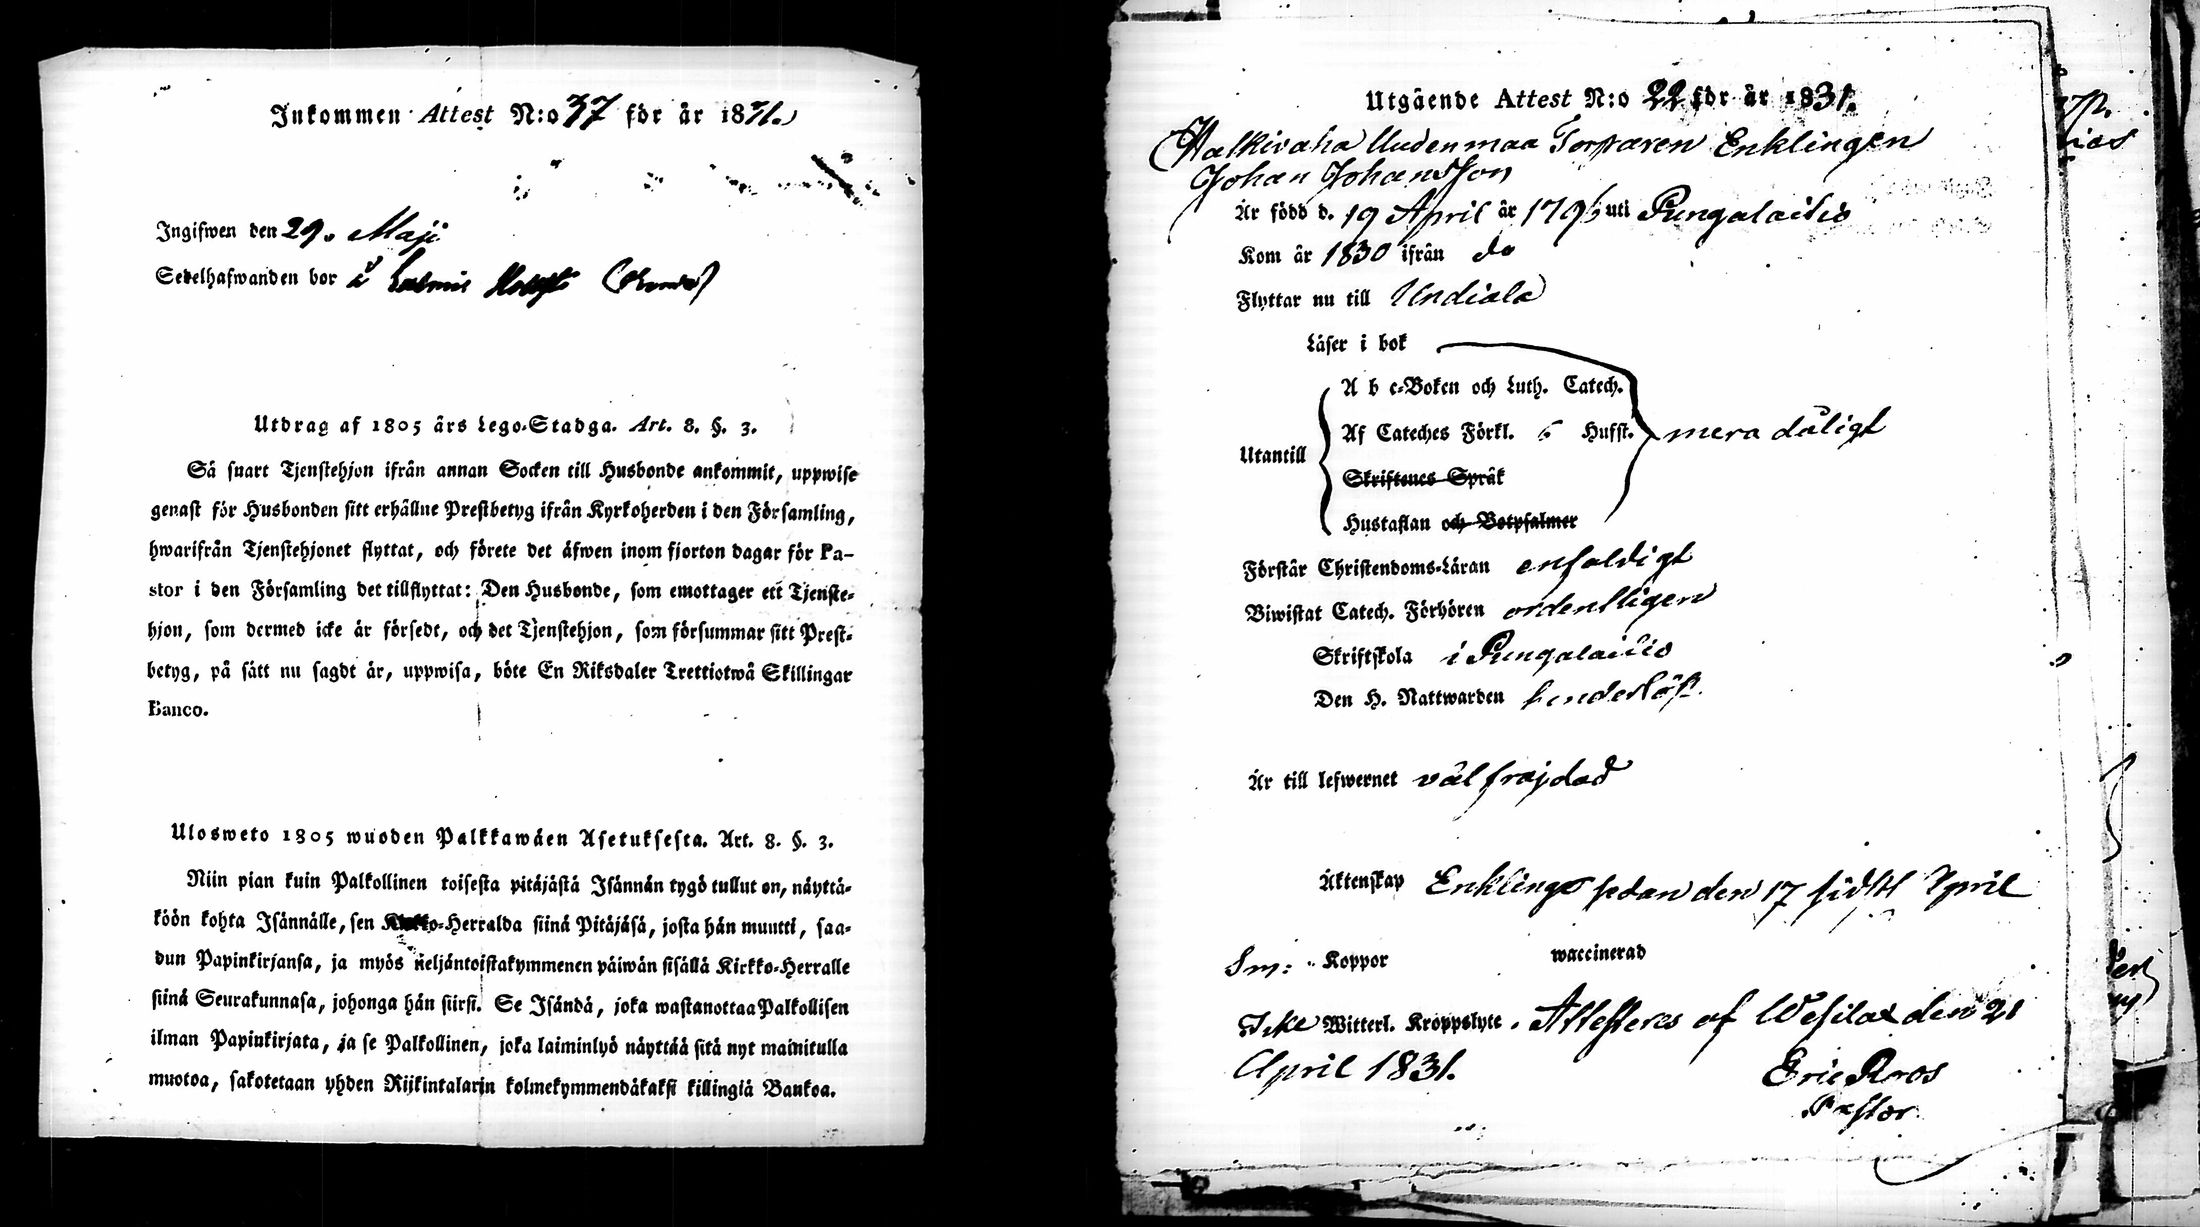 Inkommen Attest N:o 37 för år 1831.
Ingifwen den 29. Maji
Sedelhafwanden bor i
Utdrag af 1805 års Lego-Stadga. Art. 8. §. 3.
Så snart Tjenstehjon ifrån annan Socken till Husbonde ankommit, uppwise
genast för Husbonden sitt erhållne Prestbetyg ifrån Kyrkoherden i den Församling,
hwarifrån Tjenstehjonet flyttat, och förete det äfwen inom fjorton dagar för Pa-
stor i den Församling det tillflyttat: Den Husbonde, som emottager ett Tjenste-
hjon, som dermed icke är försedt, och det Tjenstehjon, som försummar sitt Prest-
betyg, på sätt nu sagdt är, uppwisa, böte En Riksdaler Trettiotwå Skillingar
Banco.
Ulosweto 1805 wuoden Palkkawäen Asetuksesta. Art. 8. §. 3.
Niin pian kuin Palkollinen toisesta pitäjästä Isännän tygö tullut on, näyttä-
köön kohta Isännälle, sen Kirkko-Herralda siinä Pitäjäsä, josta hän muutti, saa-
dun Papinkirjansa, ja myös neljäntoistakymmenen päiwän sisällä Kirkko-Herralle
siinä Seurakunnasa, johonga hän siirsi. Se Isändä, joka wastanottaa Palkollisen
ilman Papinkirjata, ja se Palkollinen, joka laiminlyö näyttää sitä nyt mainitulla
muotoa, sakotetaan yhden Rijkintalarin kolmekymmendäkaksi killingiä Bankoa.
Utgående Attest N:o 22 för år 1831.
Walkivaha Uudenmaa Torparen Enklingen
Johan Johansson
Är född d. 19 April år 1796 uti Pungalaitio
Kom år 1830 ifrån do
Flyttar nu till Undiala
Läser i bok
A b c-Boken och Luth. Catech.
Af Cateches Förkl. 6 Hufst. mera dåligt
Utantill
Skriftenes Språk
Hustaflan och Botpsalmer
Förstår Christendoms-Läran enfaldigt
Biwistat Catech. Förhören ordentligen
Skriftskola i Pungalaitio
Den H. Nattwarden hinderlöst
Är till lefwernet väl frejdad
Äktenskap Enkling sedan den 17 sidstl April
Koppor waccinerad
Icke Witterl. Kroppslyte. Attesteras af Wesilax den 21
April 1831.
Eric Roos
Pastor